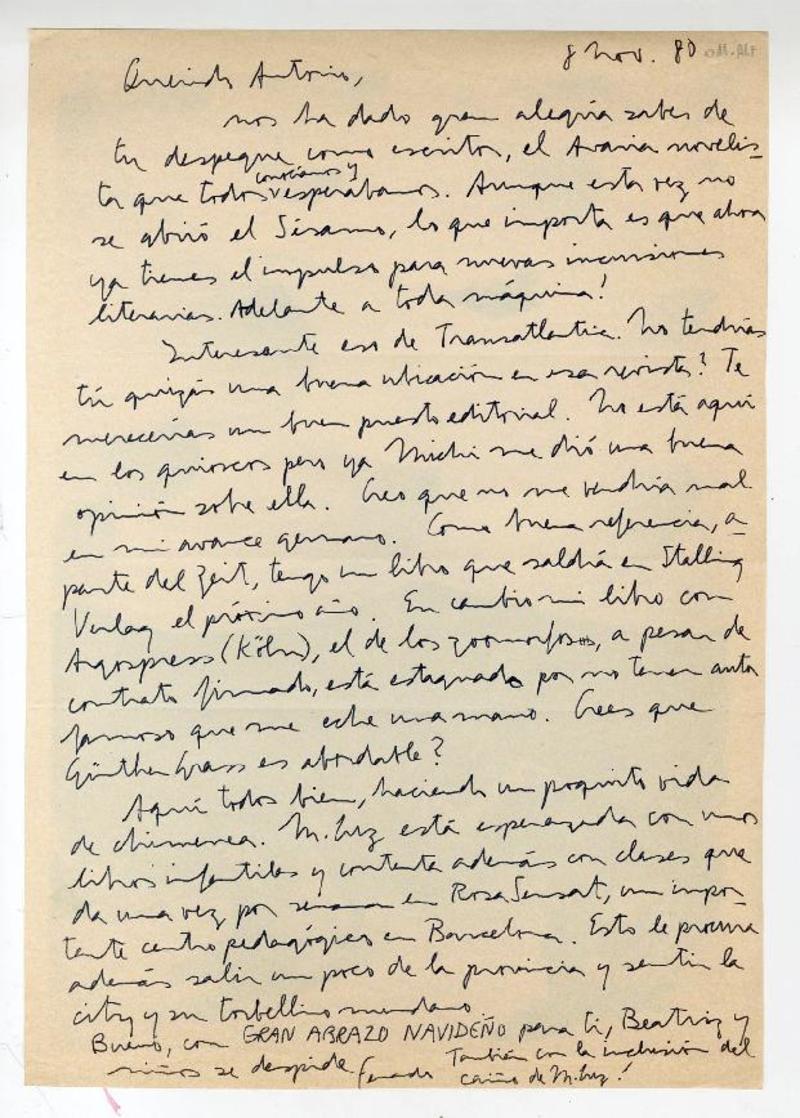 8 Nov. 80
Querido Antonio,
nos ha dado gran alegría saber de
tu despegue como escritor, el Avaria novelis-
ta que todos conocíamos y esperábamos. Aunque esta vez no
se abrió el Sésamo, lo que importa es que ahora
ya tienes el impulso para nuevas incursiones
literarias. Adelante a toda máquina!
Interesante eso de Transatlantic. No tendrías
tú quizás una buena ubicación en esa revista? Te
merecerías un buen puesto editorial. No está aquí
en los quioscos pero ya Michi me dió una buena
opinión sobre ella. Creo que no me vendría mal
en mi avance germano. Como buena referencia, a-
parte del Zeit, tengo un libro que saldrá en Stalling
Verlag el próximo año. En cambio mi libro con
Argospress (Köln), el de los zoomorfosos, a pesar de
contrato firmado, está estagnado por no tener autor
famoso que me eche una mano. Crees que
Günther Grass es abordable?
Aquí todos bien, haciendo un poquito vida
de chimenea. M. Luz está esperanzada con unos
libros infantiles y contenta además con clases que
da una vez por semana en Rosa Sensat, un impor-
tante centro pedagógico en Barcelona. Esto le procura
además salir un poco de la provincia y sentir la
city y su torbellino mundano.
Bueno, con GRAN ABRAZO NAVIDEÑO para ti, Beatriz y
niños se despide
También con la inclusión del
cariño de M. Luz!